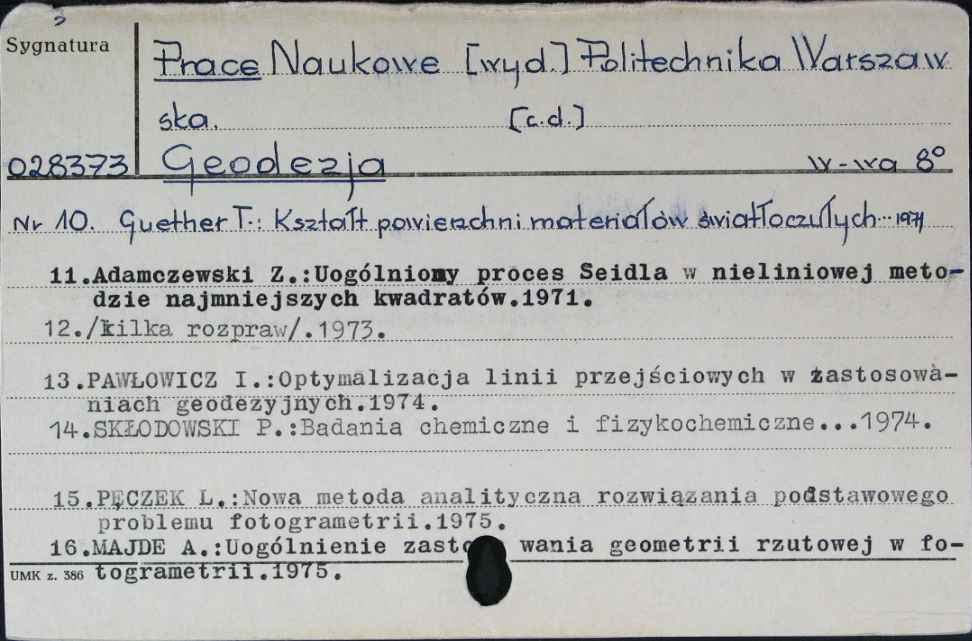 3
Sygnatura
Prace Naukowe [wyd.] Politechnika Warszaw
ska. [c.d.]
028373 Geodezja W-wa 8°
Nr 10. Guether T.: Kształt powierzchni materiałów światłoczułych... 1971
11.Adamczewski Z.:Uogólniony proces Seidla w nieliniowej meto-
dzie najmniejszych kwadratów.1971.
12./kilka rozpraw/.1973.
13.PAWŁOWICZ I.:Optymalizacja linii przejściowych w zastosowa-
niach geodezyjnych.1974.
14.SKŁODOWSKI P.:Badania chemiczne i fizykochemiczne...1974.
15.PĘCZEK L.:Nowa metoda analityczna rozwiązania podstawowego
problemu fotogrametrii.1975.
16.MAJDE A.:Uogólnienie zasto wania geometrii rzutowej w fo-
UMK z. 386 togrametrii.1975.